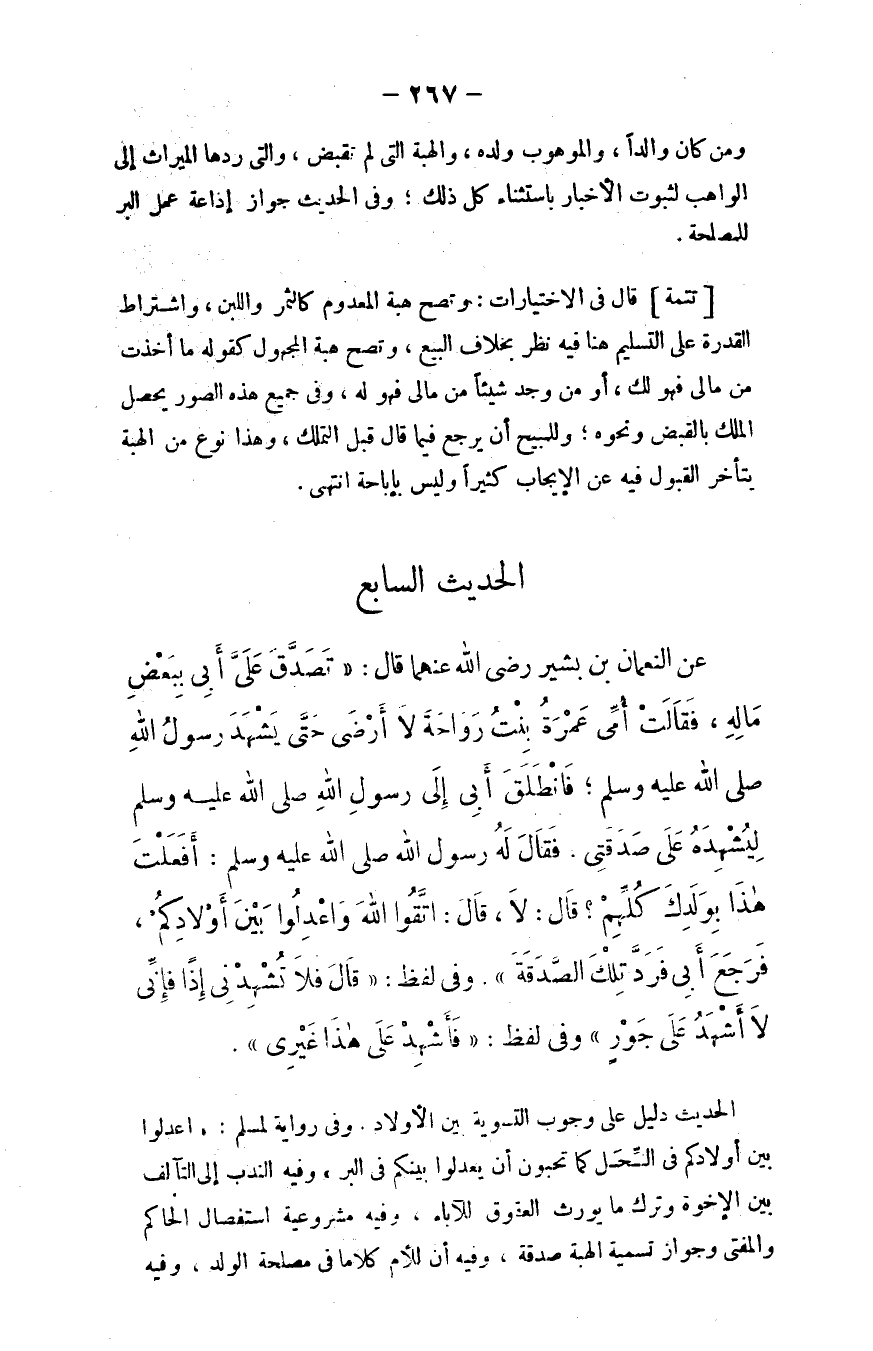 – ٢٦٧ –
ومن كان والداً ، والموهوب ولده ، والهبة التى لم تقبض ، والتى ردها الميراث إلى
الواهب لثبوت الأخبار باستثناء كل ذلك ؛ وفى الحديث جواز إذاعة عمل البر
للمصلحة .
[ تتمة ] قال فى الاختيارات : وتصح هبة المعدوم كالثمر واللبن ، واشتراط
القدرة على التسليم هنا فيه نظر بخلاف البيع ، وتصح هبة المجهول كقوله ما أخذت
من مالى فهو لك ، أو من وجد شيئاً من مالى فهو له ، وفى جميع هذه الصور يحصل
الملك بالقبض ونحوه ؛ وللمبيح أن يرجع فيما قال قبل التملك ، وهذا نوع من الهبة
يتأخر القبول فيه عن الإيجاب كثيراً وليس بإباحة انتهى .
الحديث السابع
عن النعمان بن بشير رضى الله عنهما قال : « تَصَدَّقَ عَلَىَّ أَبِى بِبَعْضِ
مَالِهِ ، فَقَالَتْ أُمِّى عَمْرَةُ بِنْتُ رَوَاحَةَ لاَ أَرْضَى حَتَّى يَشْهَدَ رسولُ اللهِ
صلى الله عليه وسلم ؛ فَانْطَلَقَ أَبِى إِلَى رسولِ اللهِ صلى الله عليه وسلم
لِيُشْهِدَهُ عَلَى صَدَقَتِى . فَقَالَ لَهُ رسول الله صلى الله عليه وسلم : أَفَعَلْتَ
هٰذَا بِوَلَدِكَ كُلِّهِمْ ؟ قال : لاَ ، قَالَ : اتَّقُوا اللهَ وَاعْدِلُوا بَيْنَ أَوْلادِكُمْ ،
فَرَجَعَ أَبِى فَرَدَّ تِلْكَ الصَّدَقَةَ » . وفى لفظ : « قَالَ فَلاَ تُشْهِدْنِى إِذًا فَإِنِّى
لاَ أَشْهَدُ عَلَى جَوْرٍ » وفى لفظ : « فَأَشْهِدْ عَلَى هٰذَا غَيْرِى » .
الحديث دليل على وجوب التسوية بين الأولاد . وفى رواية لمسلم : . اعدلوا
بين أولادكم فى النِّحَل كما تحبون أن يعدلوا بينكم فى البر ، وفيه الندب إلى التآلف
بين الإخوة وترك ما يورث العقوق للآباء ، وفيه مشروعية استفصال الحاكم
والمفتى وجواز تسمية الهبة صدقة ، وفيه أن للأم كلاما فى مصلحة الولد ، وفيه